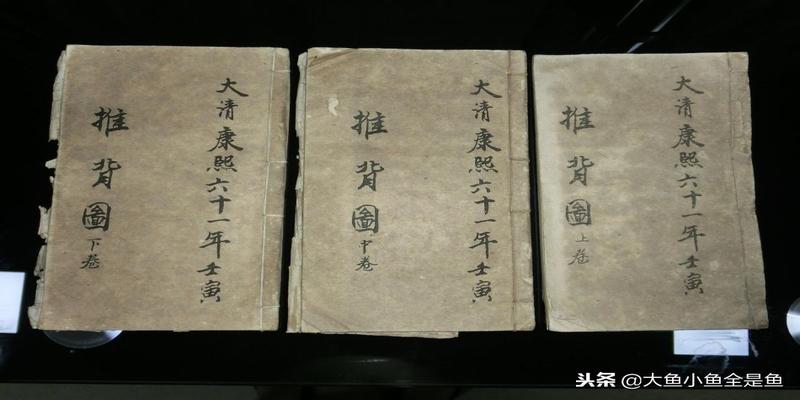 大清康熙六十一年壬寅
推背圖上卷
大清康熙六十一年壬寅
推背圖中卷
大清康熙六十一年壬寅
推背圖下卷
头条 @大鱼小鱼全是鱼